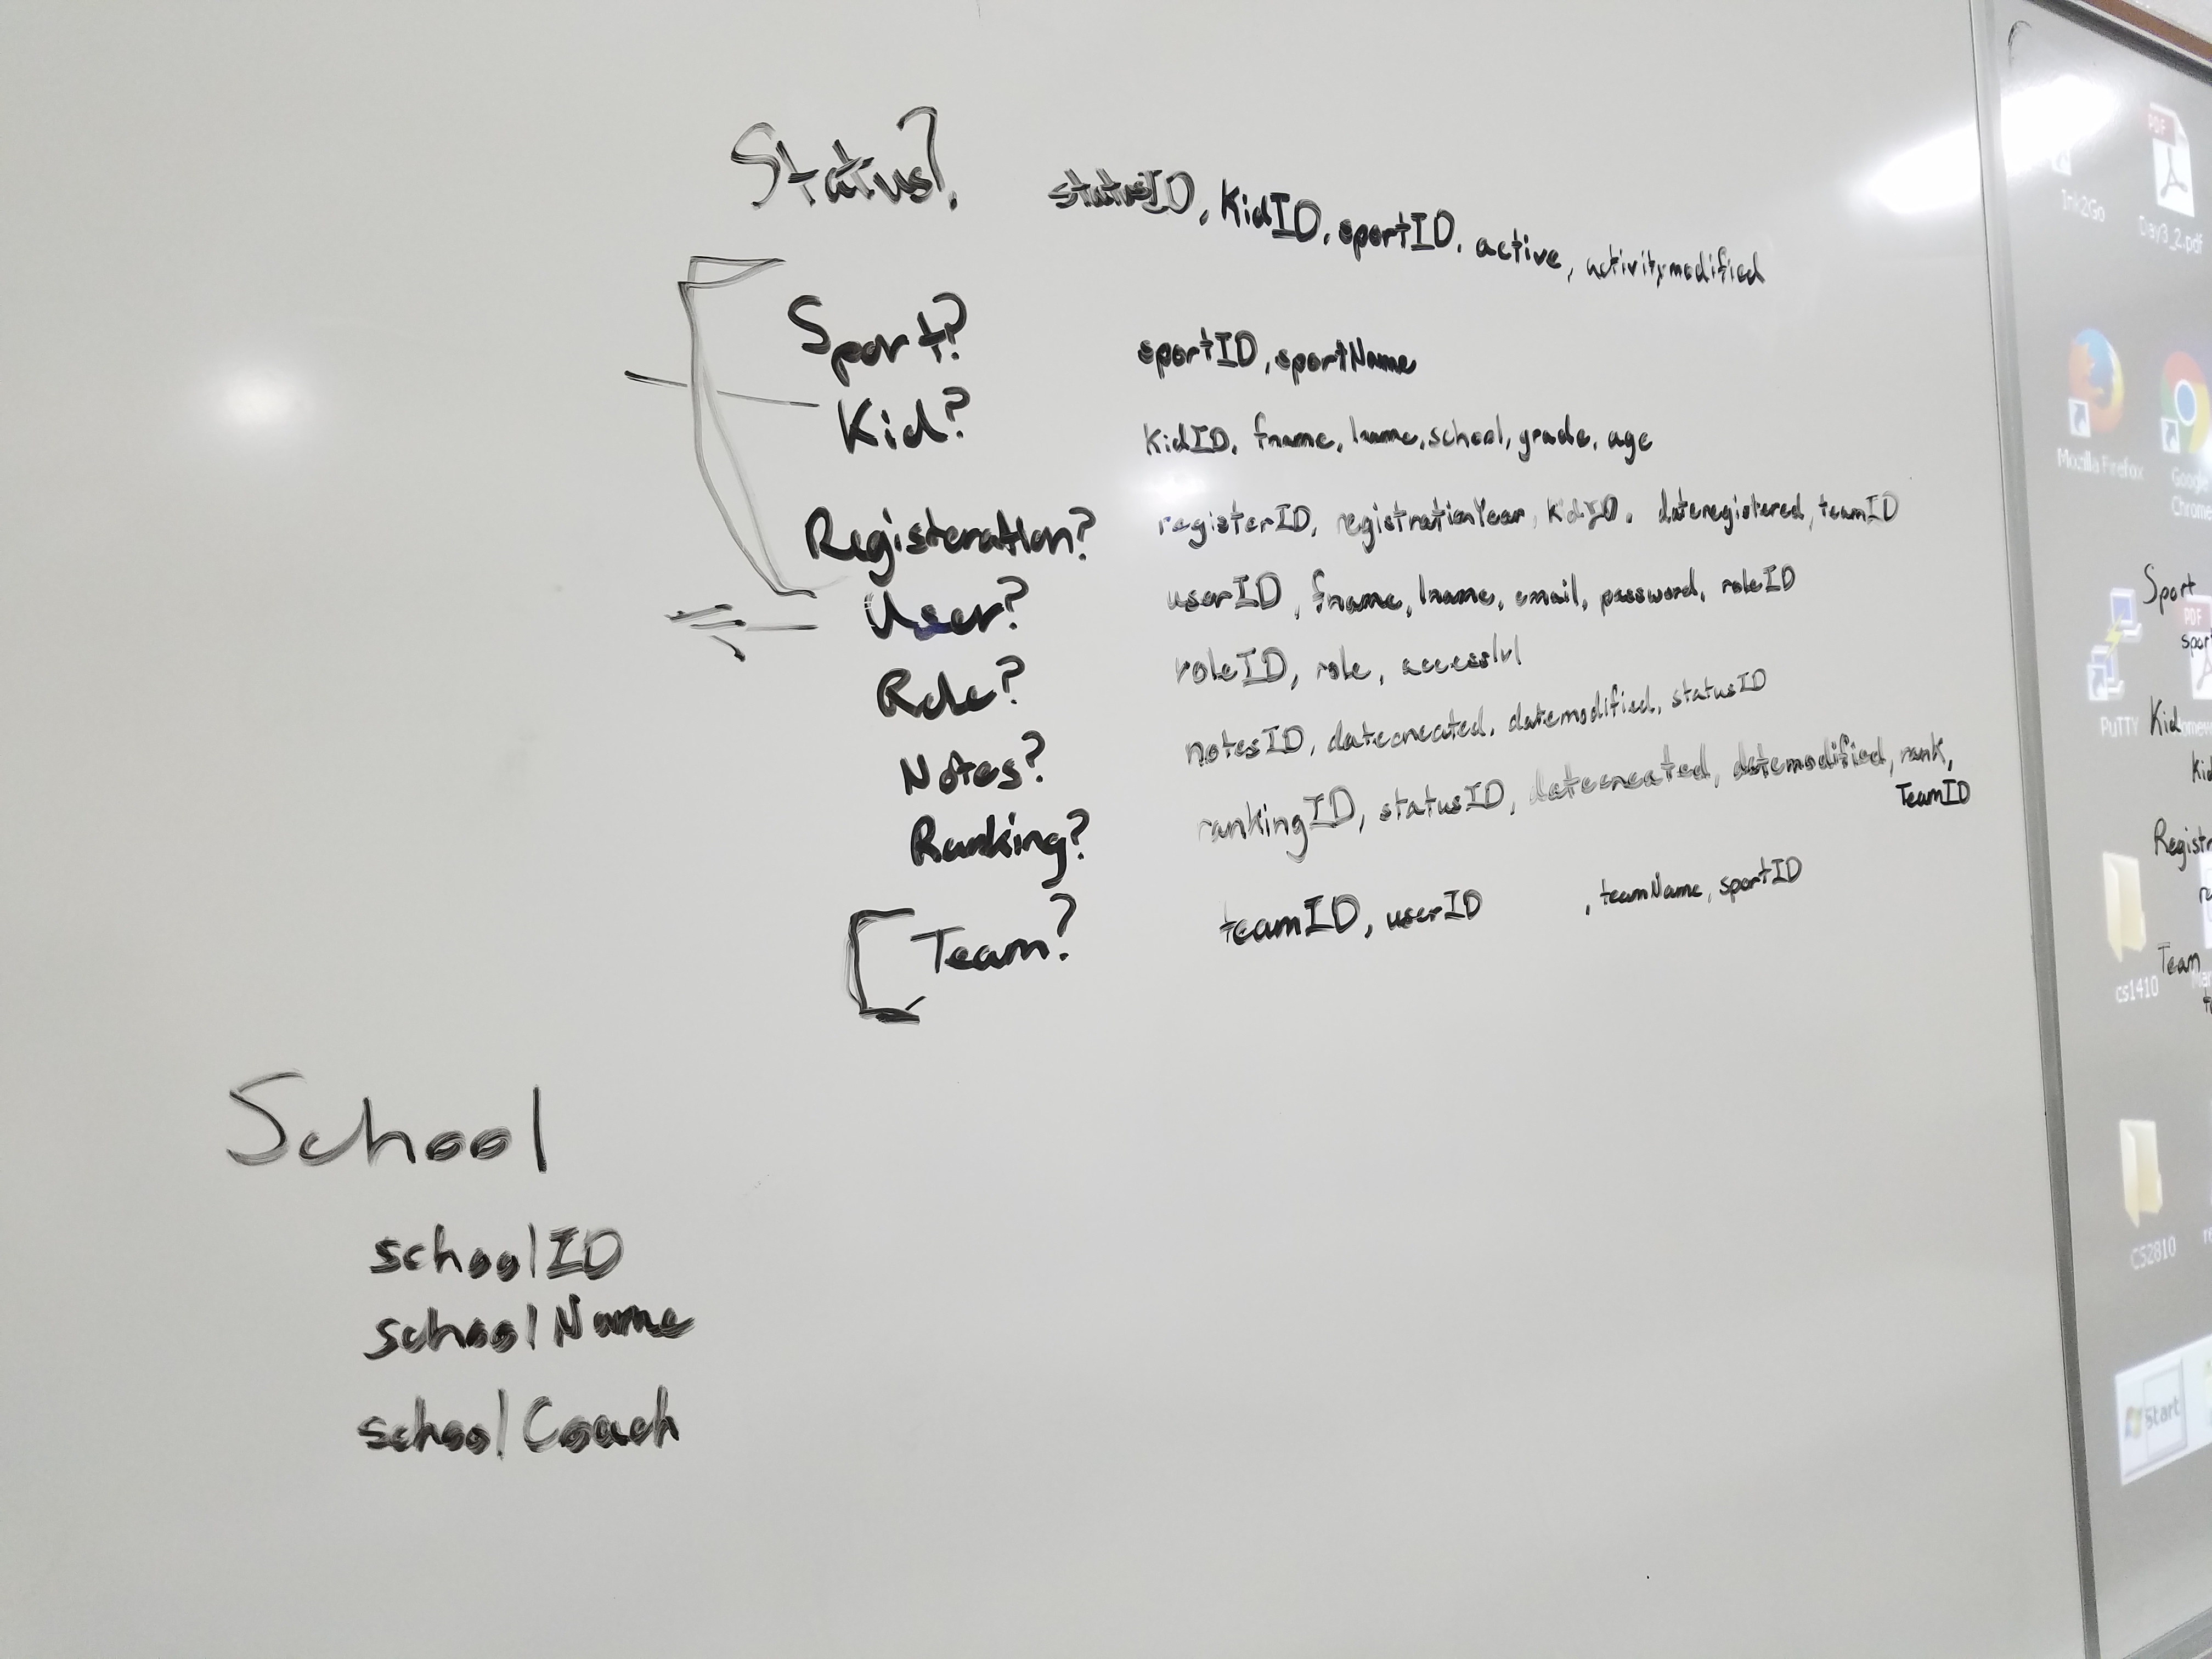 Status? statusID, KidID, sportID, active, activitymodified
Sport? sportID, sportName
Kid? KidID, fname, lname, school, grade, age
Registeration? registerID, registrationYear, KidID, dateregistered, teamID
User? userID, fname, lname, email, password, roleID
Role? roleID, role, accesslvl
Notes? notesID, datecreated, datemodified, statusID
Ranking? rankingID, statusID, datecreated, datemodified, rank,
TeamID
Team? teamID, userID , teamName, sportID
School
schoolID
schoolName
schoolCoach
Ink2Go
Day3_2.pdf
Mozilla Firefox
Google
Chrome
PuTTY
cs1410
CS2810
Start
Sport
Kid
Team
PDF
PDF